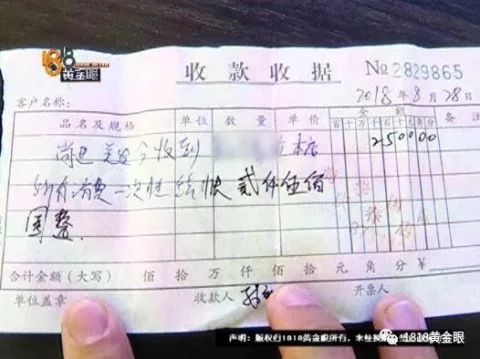 1818
黄金眼
收款收据 №2829865
2018年8月28日
客户名称:
品名及规格 单位 数量 单价 金额 备注
百十万千百十元角分
尚艺美发今收到 本店 250000
所有消费一次性结账贰仟伍佰
圆整.
合计金额(大写) 佰 拾 万 仟 佰 拾 元 角 分 ¥
单位盖章 收款人 开票人
声明:版权归1818黄金眼所有,未经授权
1818黄金眼